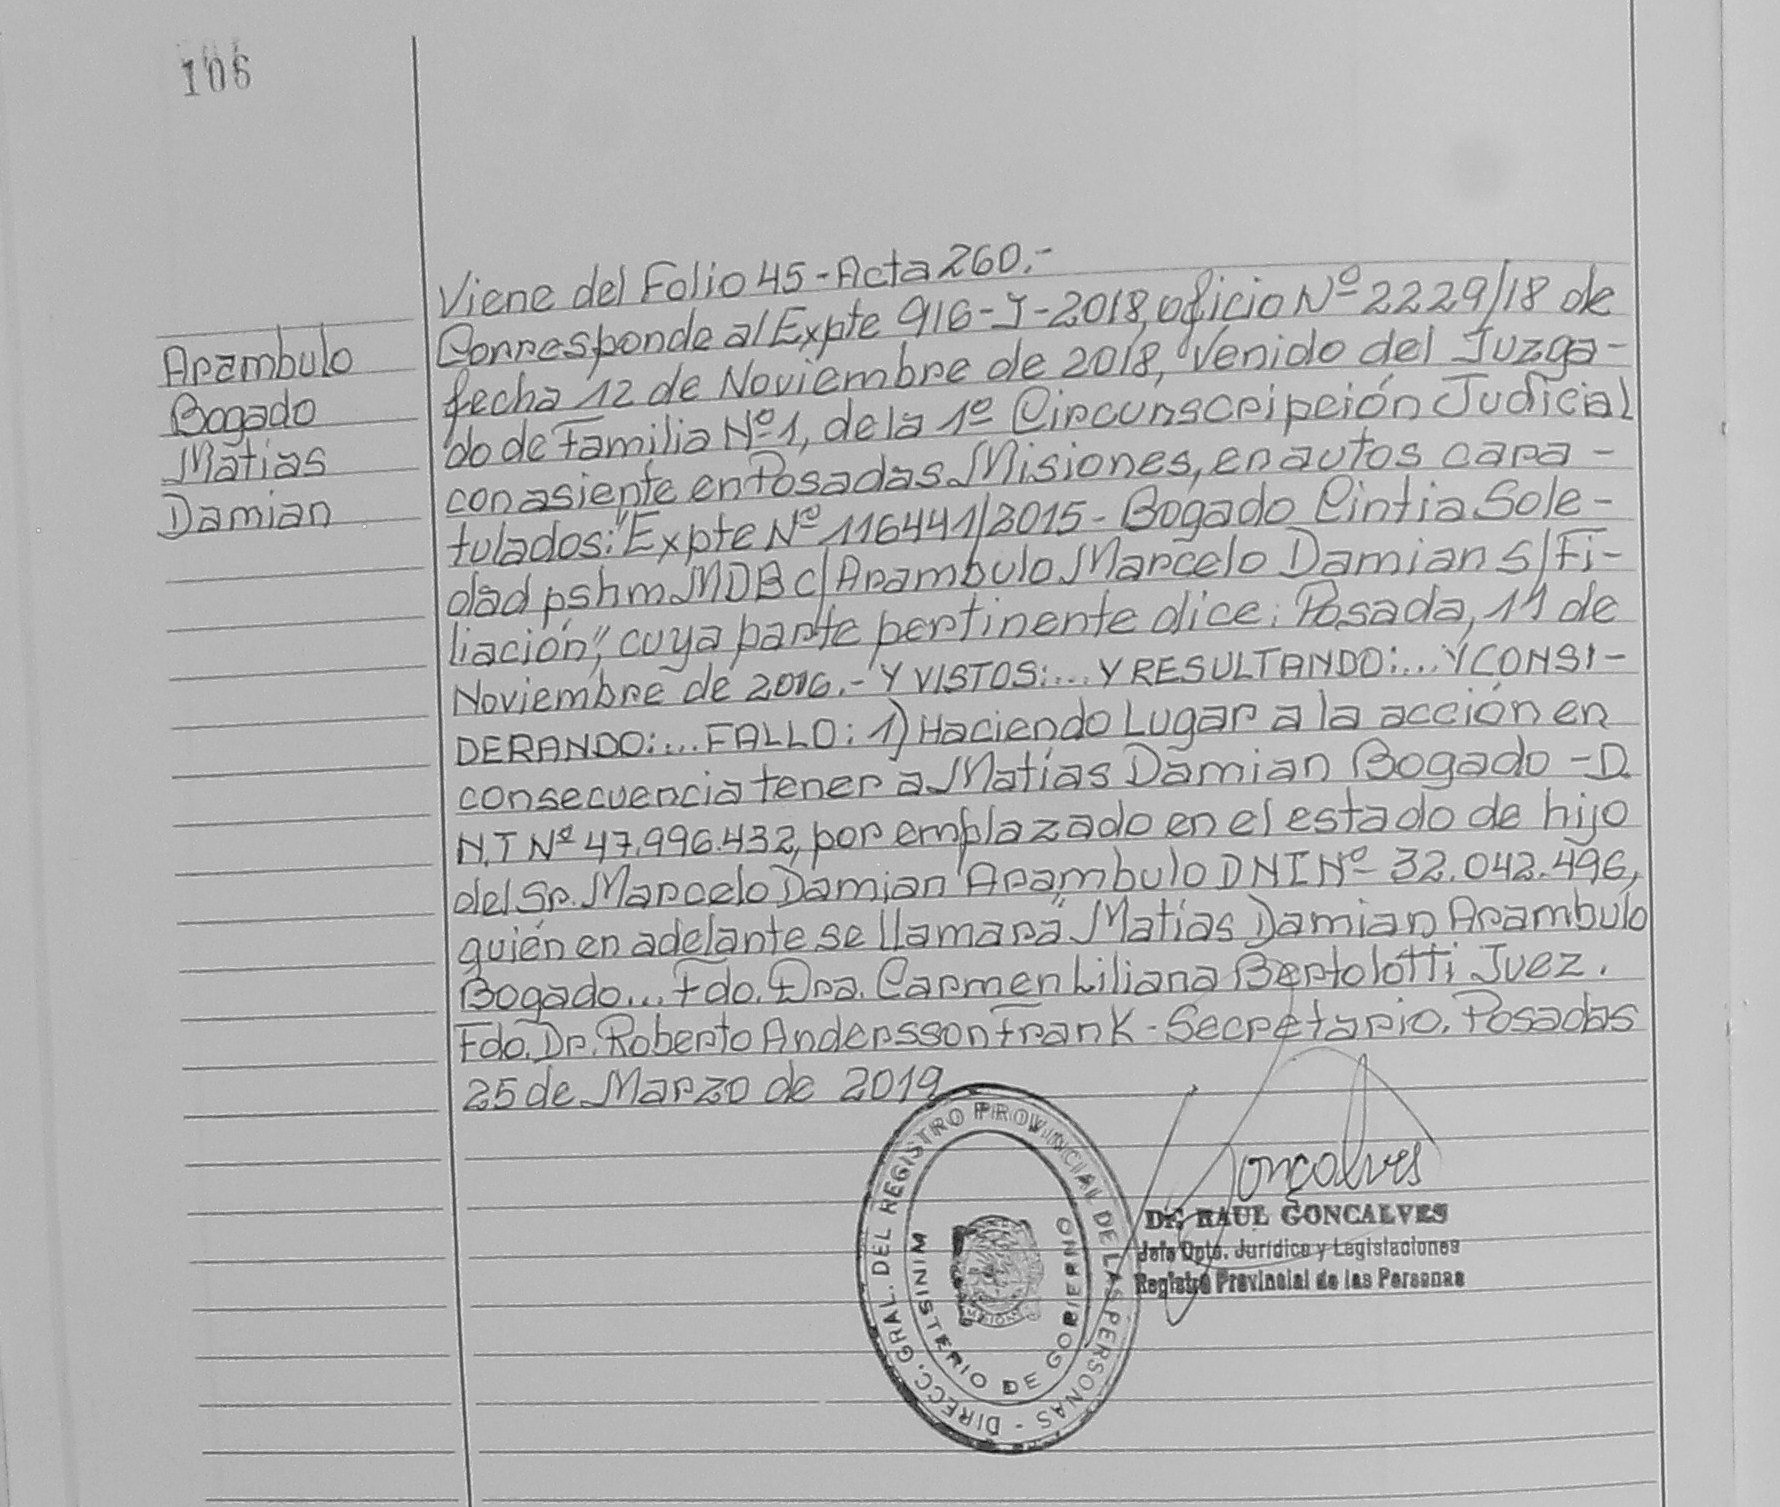 106
Viene del Folio 45 - Acta 260.-
Corresponde al Expte 916-J-2018, oficio Nº 2229/18 de
fecha 12 de Noviembre de 2018, Venido del Juzga-
do de Familia Nº 1, de la 1º Circunscripción Judicial
con asiente en Posadas Misiones, en autos cara-
tulados: "Expte Nº 116441/2015 - Bogado Cintia Sole-
dad pshm MDB c/ Arambulo Marcelo Damian S/ Fi-
liación", cuya parte pertinente dice: Posada, 11 de
Noviembre de 2016.- Y VISTOS:... Y RESULTANDO:... Y CONSI-
DERANDO:... FALLO: 1) Haciendo Lugar a la acción en
consecuencia tener a Matías Damian Bogado - D.
N.I Nº 47.996.432, por emplazado en el estado de hijo
del Sr. Marcelo Damian Arambulo DNI Nº 32.042.496,
quién en adelante se llamará "Matías Damian Arambulo
Bogado... Fdo. Dra. Carmen Liliana Bertolotti Juez.
Fdo. Dr. Roberto Anderssson Frank - Secretario. Posadas
25 de Marzo de 2019
Arambulo
Bogado
Matias
Damian
DIRECC. GRAL. DEL REGISTRO PROVINCIAL DE LAS PERSONAS -
MINISTERIO DE GOBIERNO
Gonçalves
Dr. RAUL GONCALVES
Jefe Dpto. Jurídico y Legislaciones
Registro Provincial de las Personas